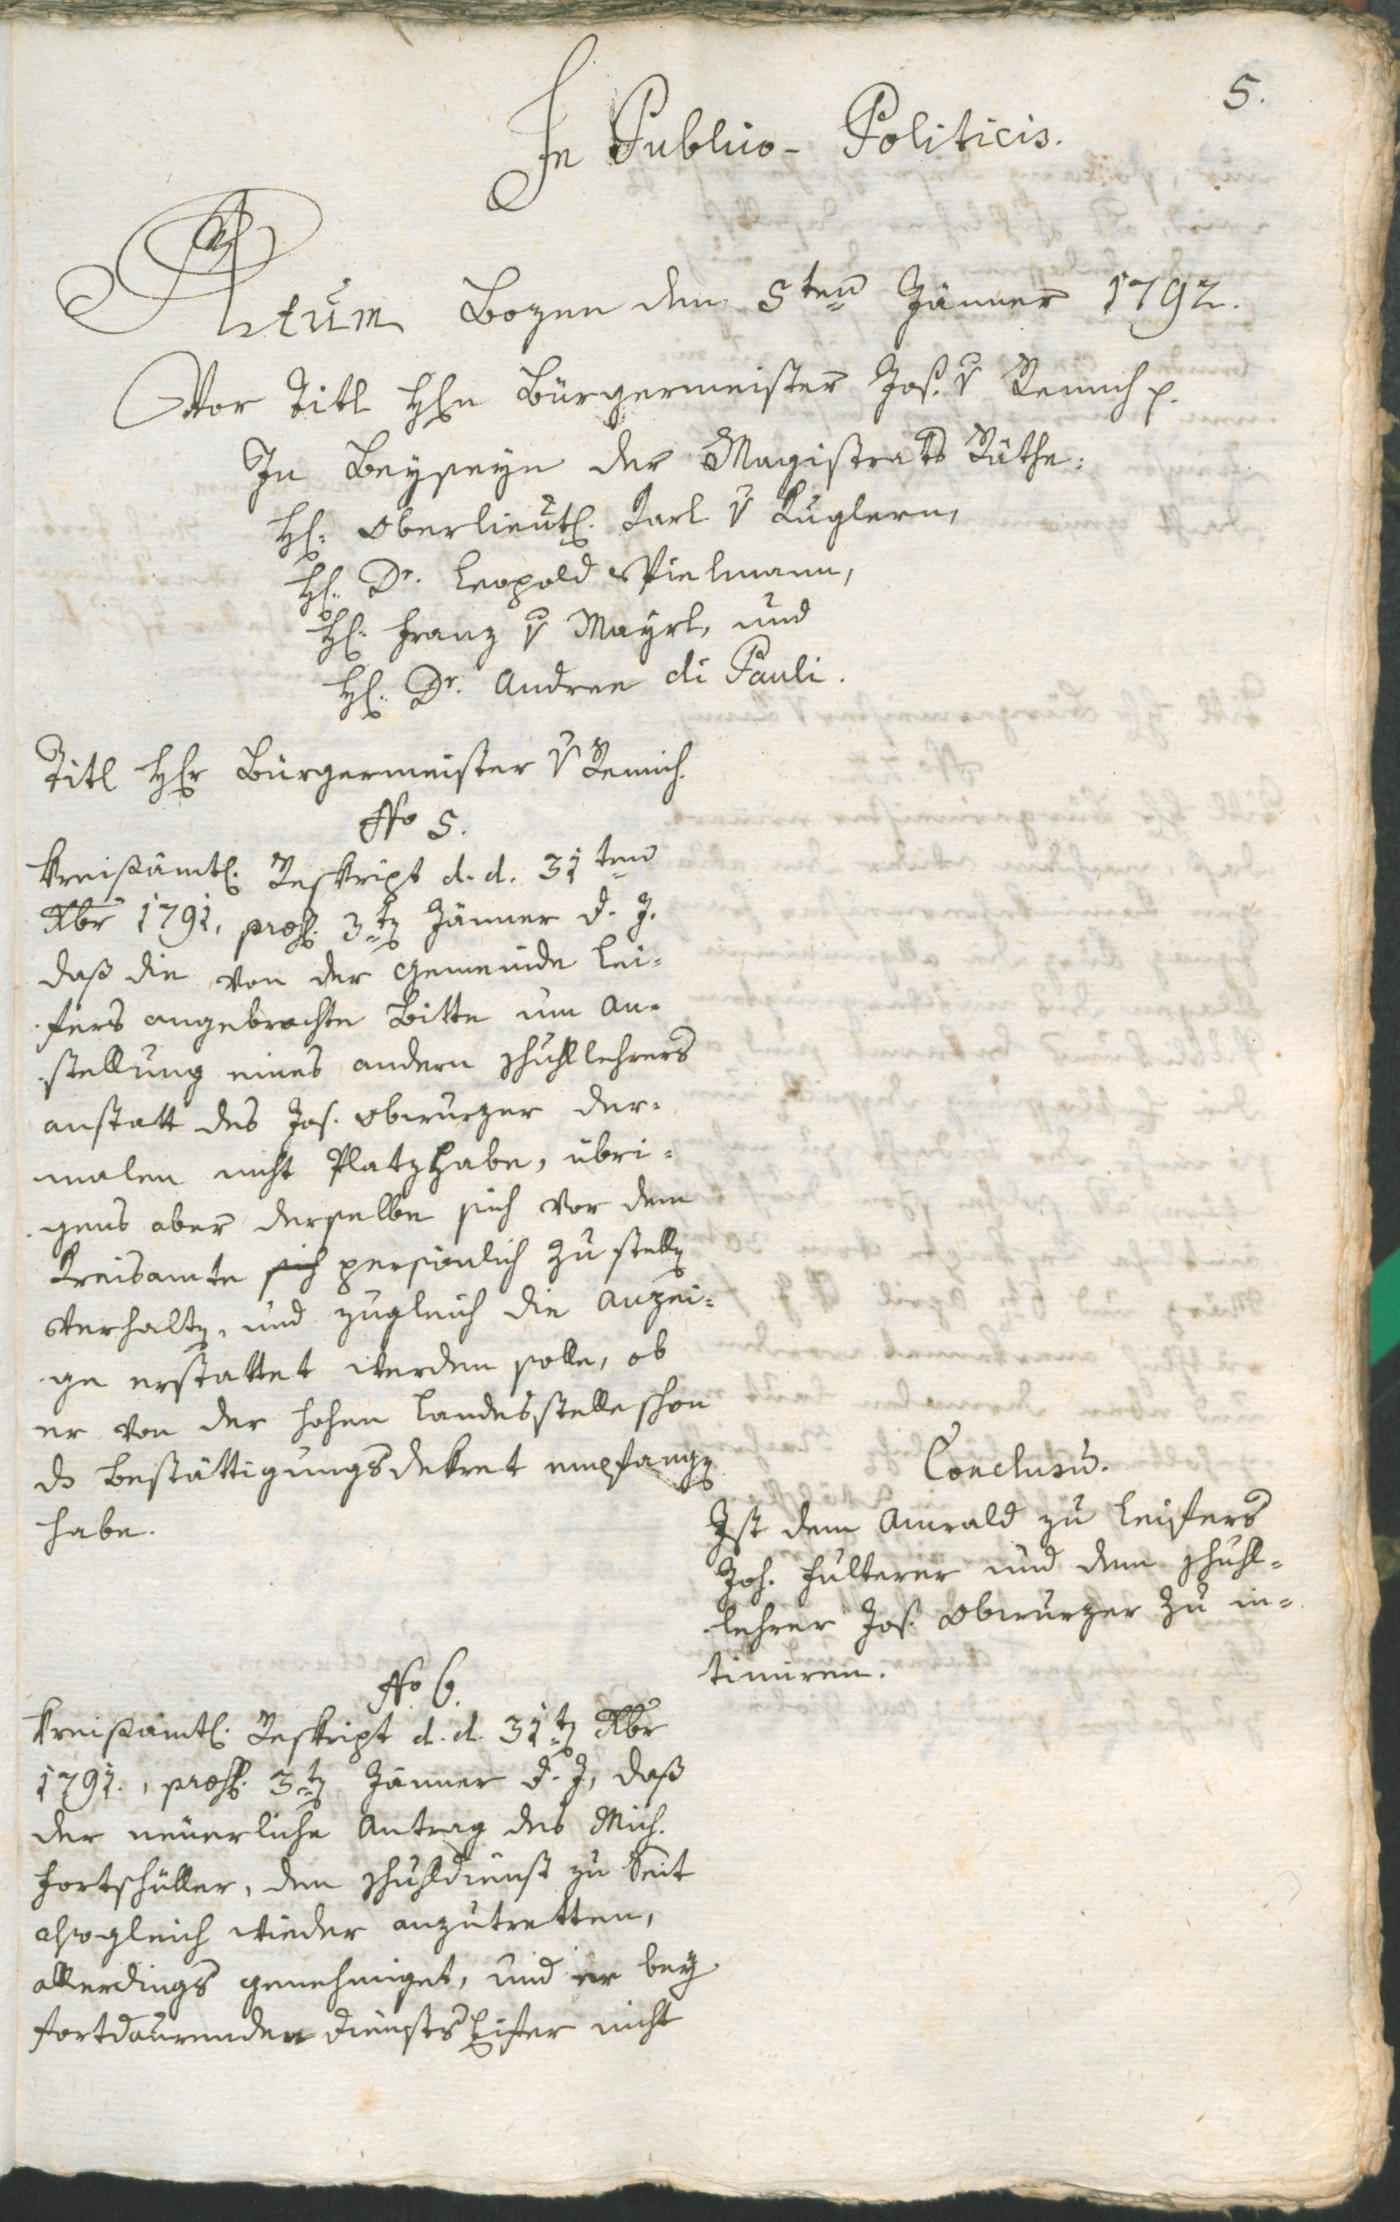 5.
In Publico- Politicis.
Actum Bozen den 5ten Jänner 1792.
Vor Titl H. Bürgermeister Jos. v Remich p.
In Beyseyn der Magistrats Räthe:
H. Oberlieut. Karl v Kuglern,
H. Dr. Leopold Vielmann,
H. Franz v Mayrl, und
H. Dr. Andree di Pauli.
Titl Hr Bürgermeister v Remich.
No 5.
Kreisämtl. Reskript d. d. 31ten
Xbr 1791, præs. 3ten Jänner d. J.
daß die von der Gemeinde Lei=
fers angebrachte Bitte um An=
stellung eines andern Schullehrers
anstatt des Jos. Obwurzer der=
malen nicht Platz habe, übri=
gens aber derselbe sich vor dem
Kreisamte sich persönlich zu stellen
verhalten, und zugleich die Anzei=
ge erstattet werden solle, ob
er von der hohen Landesstelle schon
ds Bestättigungsdekret empfangen
habe.
Conclusum.
Ist dem Anwald zu Leifers
Joh. Fulterer und dem Schuhl=
lehrer Jos. Obwurzer zu in=
timiren.
No 6.
Kreisämtl. Reskript d. d. 31ten Xbr
1791., præs. 3ten Jänner d. J, daß
der neuerliche Antrag des Mich.
Fortschüller, den Schuhldienst zu Seit
alsogleich wieder anzutretten,
allerdings genehmiget, und er bey
fortdaurenden Diensts Eifer nicht